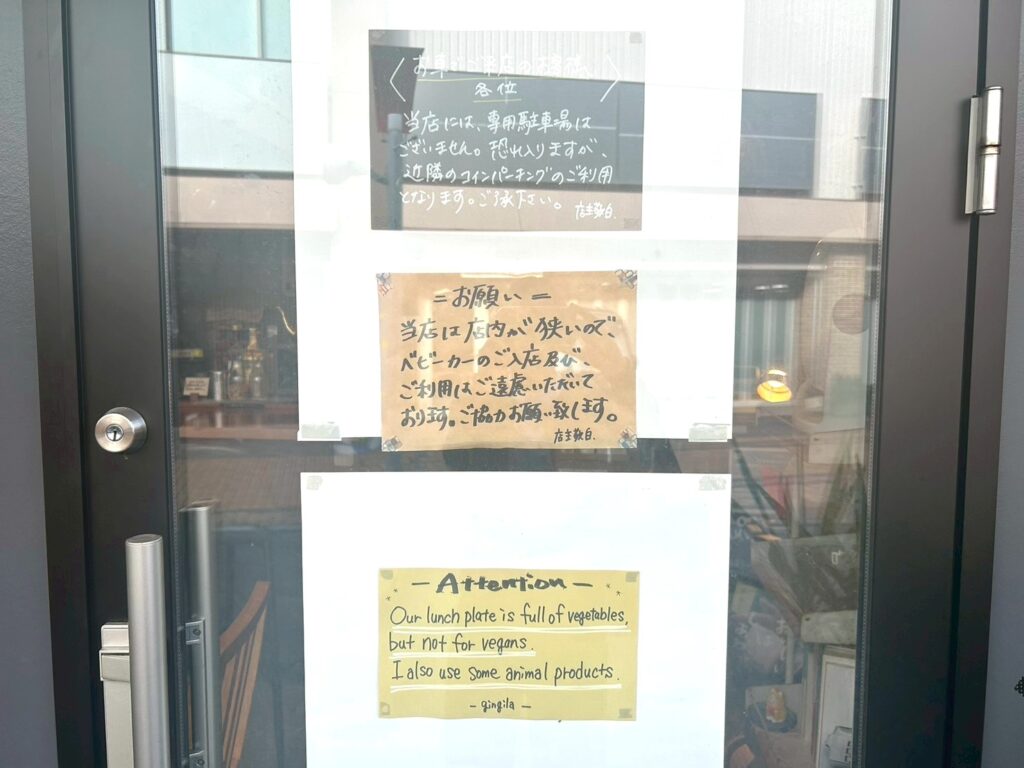 お車でご来店のお客様
各位
当店には、専用駐車場は
ございません。恐れ入りますが、
近隣のコインパーキングのご利用
となります。ご了承下さい。
店主敬白.
=お願い=
当店は店内が狭いので、
ベビーカーのご入店及び、
ご利用はご遠慮いただいて
おります。ご協力お願い致します。
店主敬白.
- Attention -
Our lunch plate is full of vegetables,
but not for vegans.
I also use some animal products.
- gingila -